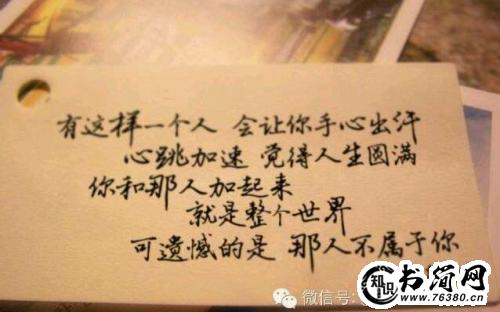 有这样一个人 会让你手心出汗
心跳加速 觉得人生圆满
你和那人加起来
就是整个世界
可遗憾的是 那人不属于你
微信号:
知识
书简网
www.76380.cn